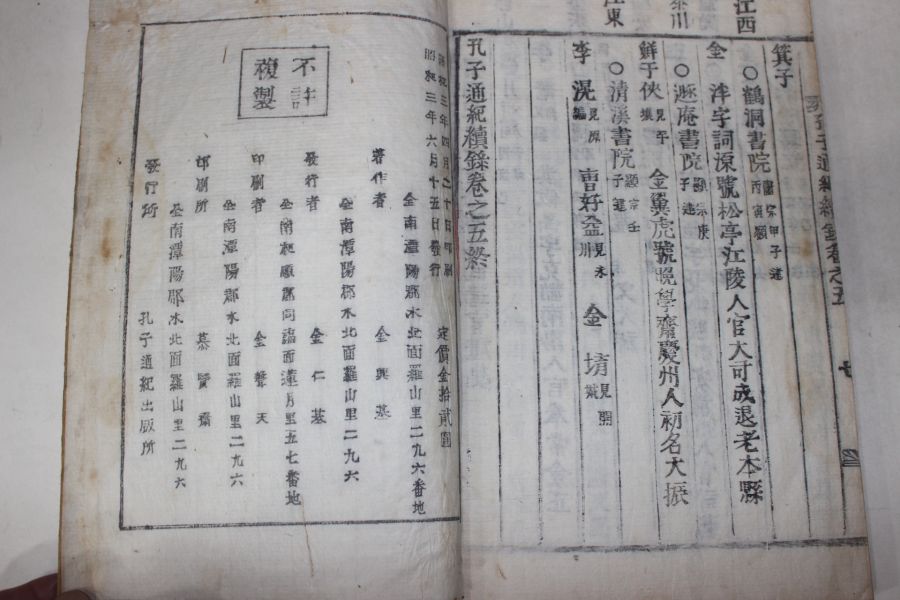 江西
江東
箕子
○鶴洞書院 肅宗甲子建 丙寅額
金 洋字詞源號松亭江陵人官大司成退老本縣
○遯庵書院 顯宗庚子建
鮮于俠 見平壤 金翼虎號晩學齋慶州人初名大振
○清溪書院 顯宗壬子建
李滉 曺好益見永川 金堉見開城
孔子通紀續錄卷之五終
孔子通紀續錄卷之五
七
不許複製
昭和三年四月二十日印刷
昭和三年六月十五日發行
定價金拾貳圓
全南潭陽郡水北面羅山里二九六番地
著作者 金興基
全南潭陽郡水北面羅山里二九六
發行者 金仁基
全南和順郡同福面蓮月里五七番地
印刷者 金聲天
全南潭陽郡水北面羅山里二九六
印刷所 慕賢齋
全南潭陽郡水北面羅山里二九六
發行所 孔子通紀出版所